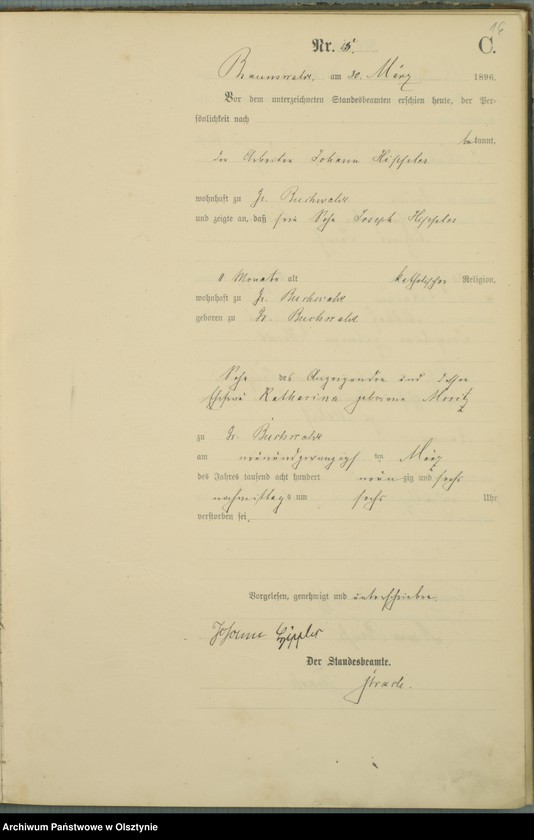 Nr. 15.
C.
Braunswalde, am 30. März 1896.
Vor dem unterzeichneten Standesbeamten erschien heute, der Per-
sönlichkeit nach
bekannt,
der Arbeiter Johann
wohnhaft zu Gr. Buchwalde
und zeigte an, daß sein Sohn Joseph
Monate alt katholischer Religion,
wohnhaft zu Gr. Buchwalde
geboren zu Gr. Buchwalde
Sohn des Anzeigenden und dessen
Ehefrau Katharina geborene Moritz
zu Gr. Buchwalde
am neunundzwanzigsten März
des Jahres tausend acht hundert neunzig und sechs
nachmittags um sechs Uhr
verstorben sei.
Vorgelesen, genehmigt und unterschrieben.
Johann
Der Standesbeamte.
Archiwum Państwowe w Olsztynie